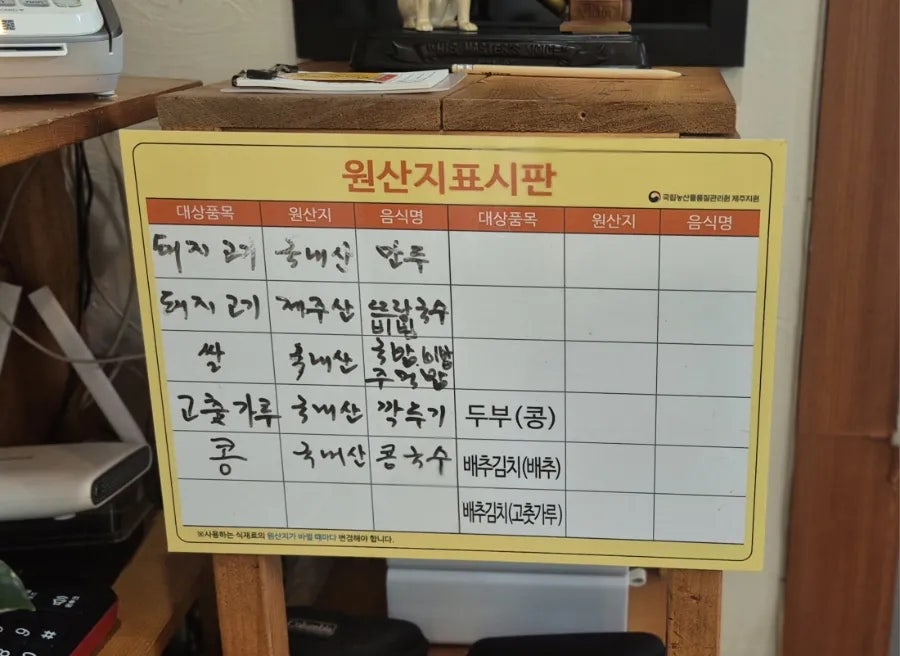 HIS MASTER'S VOICE
원산지표시판
국립농산물품질관리원 제주지원
대상품목 원산지 음식명 대상품목 원산지 음식명
돼지고기 국내산 만두
돼지고기 제주산 국수
비빔
쌀 국내산 국밥, 비빔
주먹밥
고춧가루 국내산 깍두기 두부(콩)
콩 국내산 콩국수 배추김치(배추)
배추김치(고춧가루)
※사용하는 식재료의 원산지가 바뀔 때마다 변경해야 합니다.